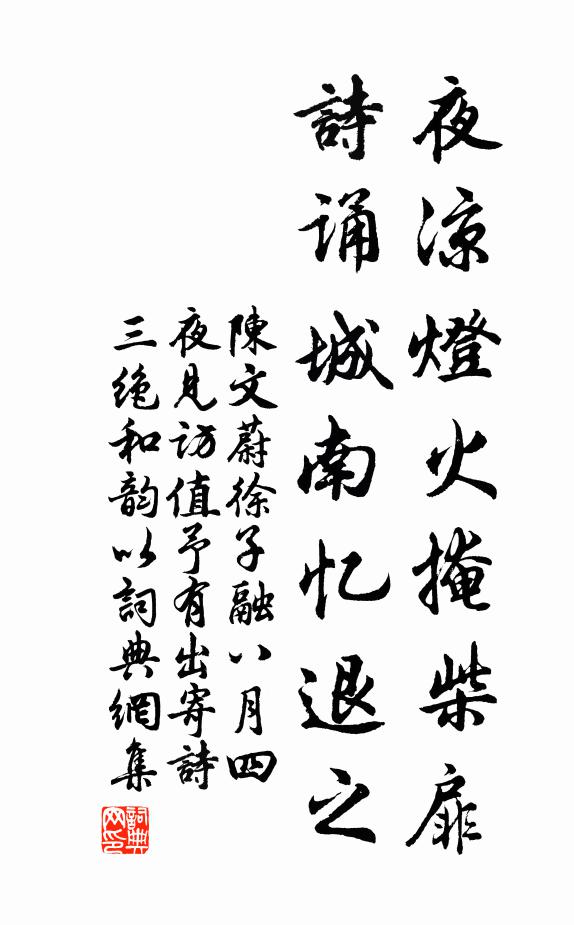 夜涼燈火掩柴扉
詩诵城南忆退之
陳文蔚徐子融八月四
夜見访值予有出寄詩
三绝和韵以詞典網集
詞典
网印